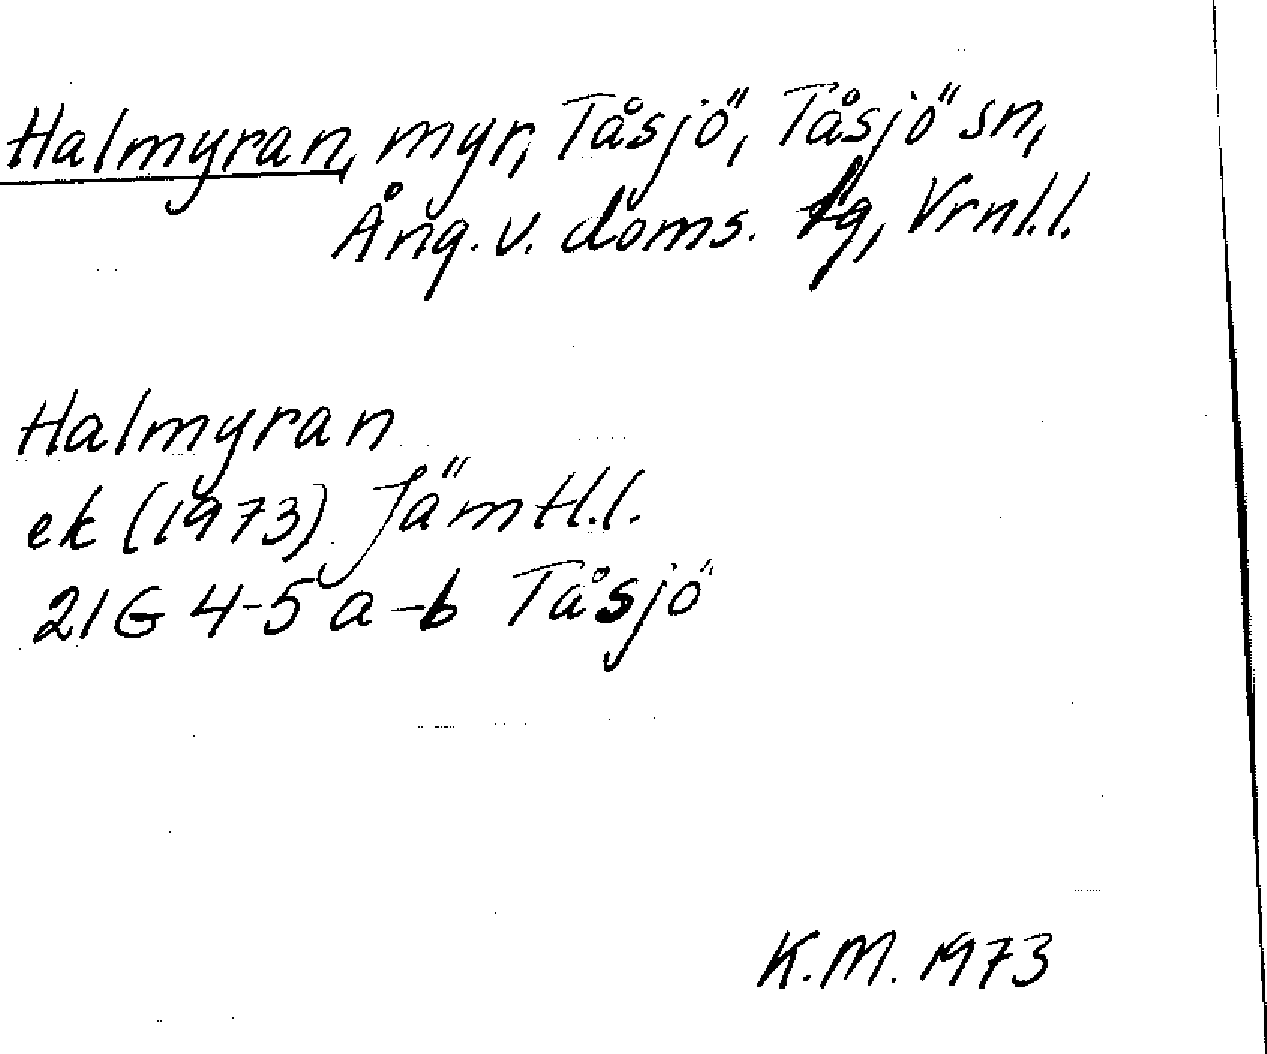 Halmyran, myr, Tåsjö, Tåsjö sn,
Ång. v. doms. tg, Vrnl.l.
Halmyran
ek (1973) Jämtl.l.
21G 4-5 a-b Tåsjö
K.M. 1973